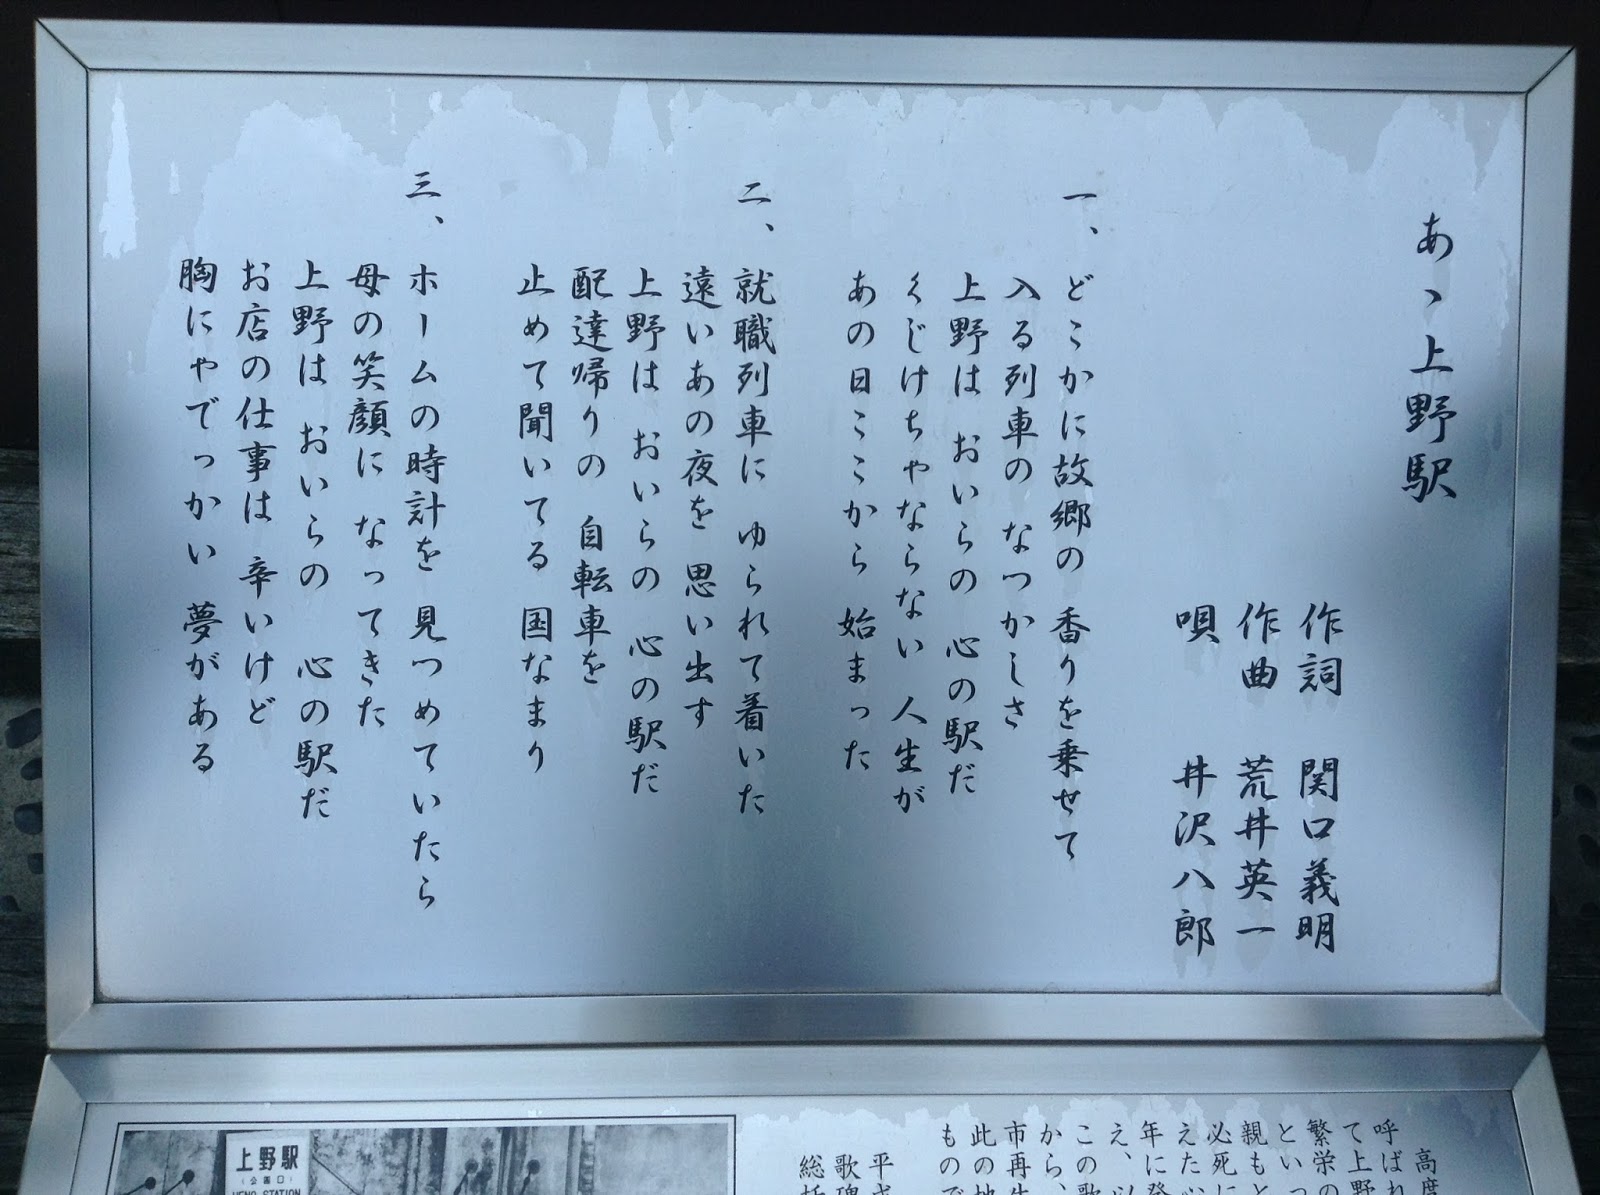 あゝ上野駅
作詞 関口義明
作曲 荒井英一
唄 井沢八郎
一、どこかに故郷の 香りを乗せて
入る列車の なつかしさ
上野は おいらの 心の駅だ
くじけちゃならない 人生が
あの日ここから 始まった
二、就職列車に ゆられて着いた
遠いあの夜を 思い出す
上野は おいらの 心の駅だ
配達帰りの 自転車を
止めて聞いてる 国なまり
三、ホームの時計を 見つめていたら
母の笑顔に なってきた
上野は おいらの 心の駅だ
お店の仕事は 辛いけど
胸にゃでっかい 夢がある
高度
呼ばれ
て上野
繁栄の
といっ
親もと
必死に
えた
年に発
え、
この歌
から、
市再生
此の地
もので
平成
歌碑
総
上野駅
(公園口)
UENO STATION